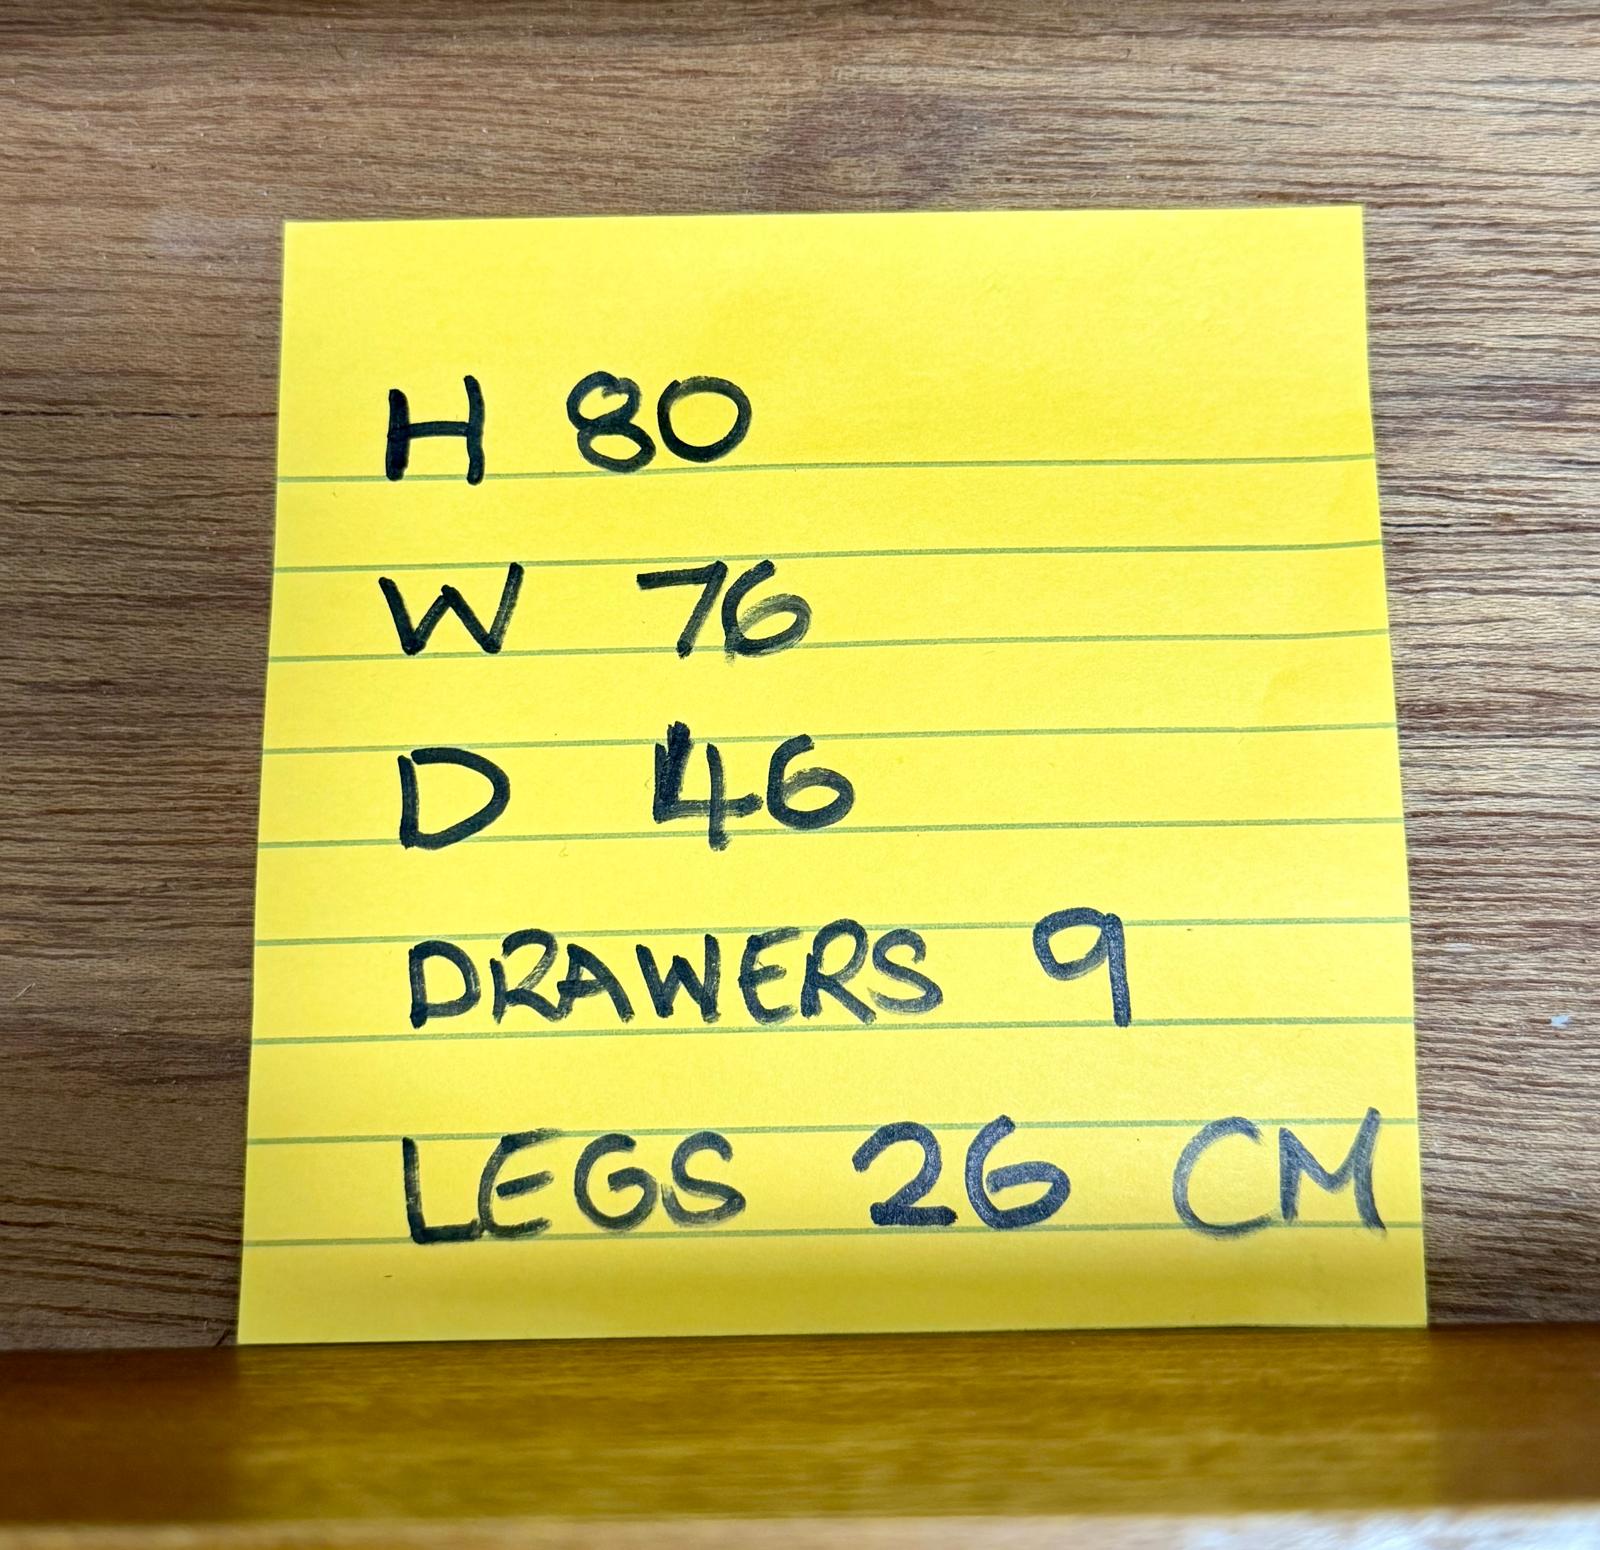 H 80
W 76
D 46
DRAWERS 9
LEGS 26 CM